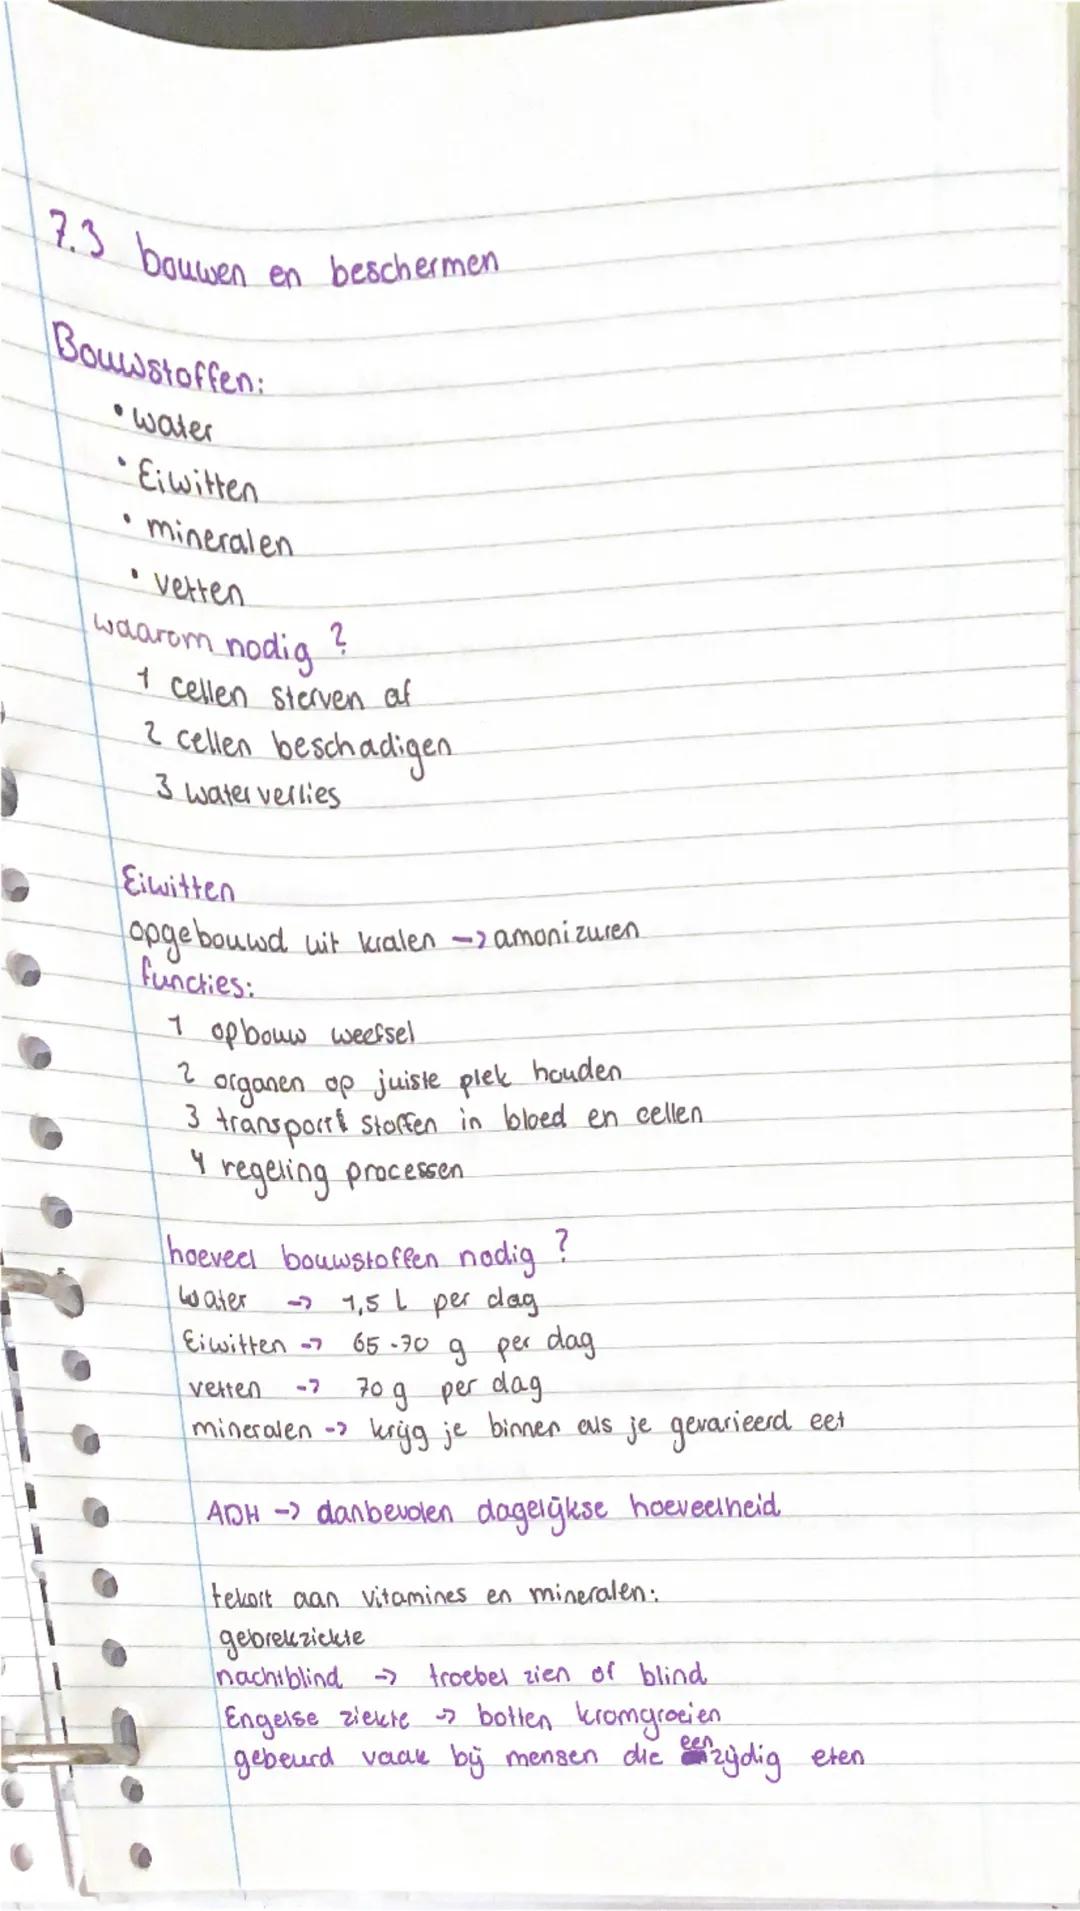 7.3 bouwen en beschermen
Bouwstoffen:
• water
• Eiwitten
• mineralen
• vetten
waarom nodig ?
1 cellen sterven af
2 cellen beschadigen
3 waterverlies
Eiwitten
opgebouwd uit kralen -> amonizuren
functies:
1 opbouw weefsel
2 organen op juiste plek houden
3 transport stoffen in bloed en cellen
4 regeling processen
hoeveel bouwstoffen nodig ?
water -> 1,5 L per dag
Eiwitten -> 65-70 g per dag
vetten -> 70 g per dag
mineralen -> krijg je binnen als je gevarieerd eet
ADH -> danbevolen dagelijkse hoeveelheid
tekort aan vitamines en mineralen:
gebrekziekte
nachtblind -> troebel zien of blind
Engelse ziekte -> botten kromgroeien
gebeurd vaak bij mensen die eenzijdig eten